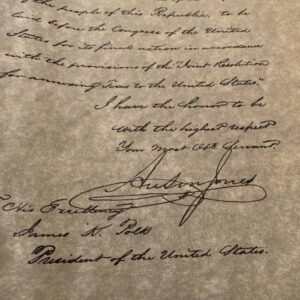 of the people of this Republic, to be
laid before the Congress of the United
States for its final action in accordance
with the provisions of the "Joint Resolution
for annexing Texas to the United States."
I have the honor to be
with the highest respect
Your Most Obt. Servant.
Anson Jones
To His Excellency
James K. Polk
President of the United States.